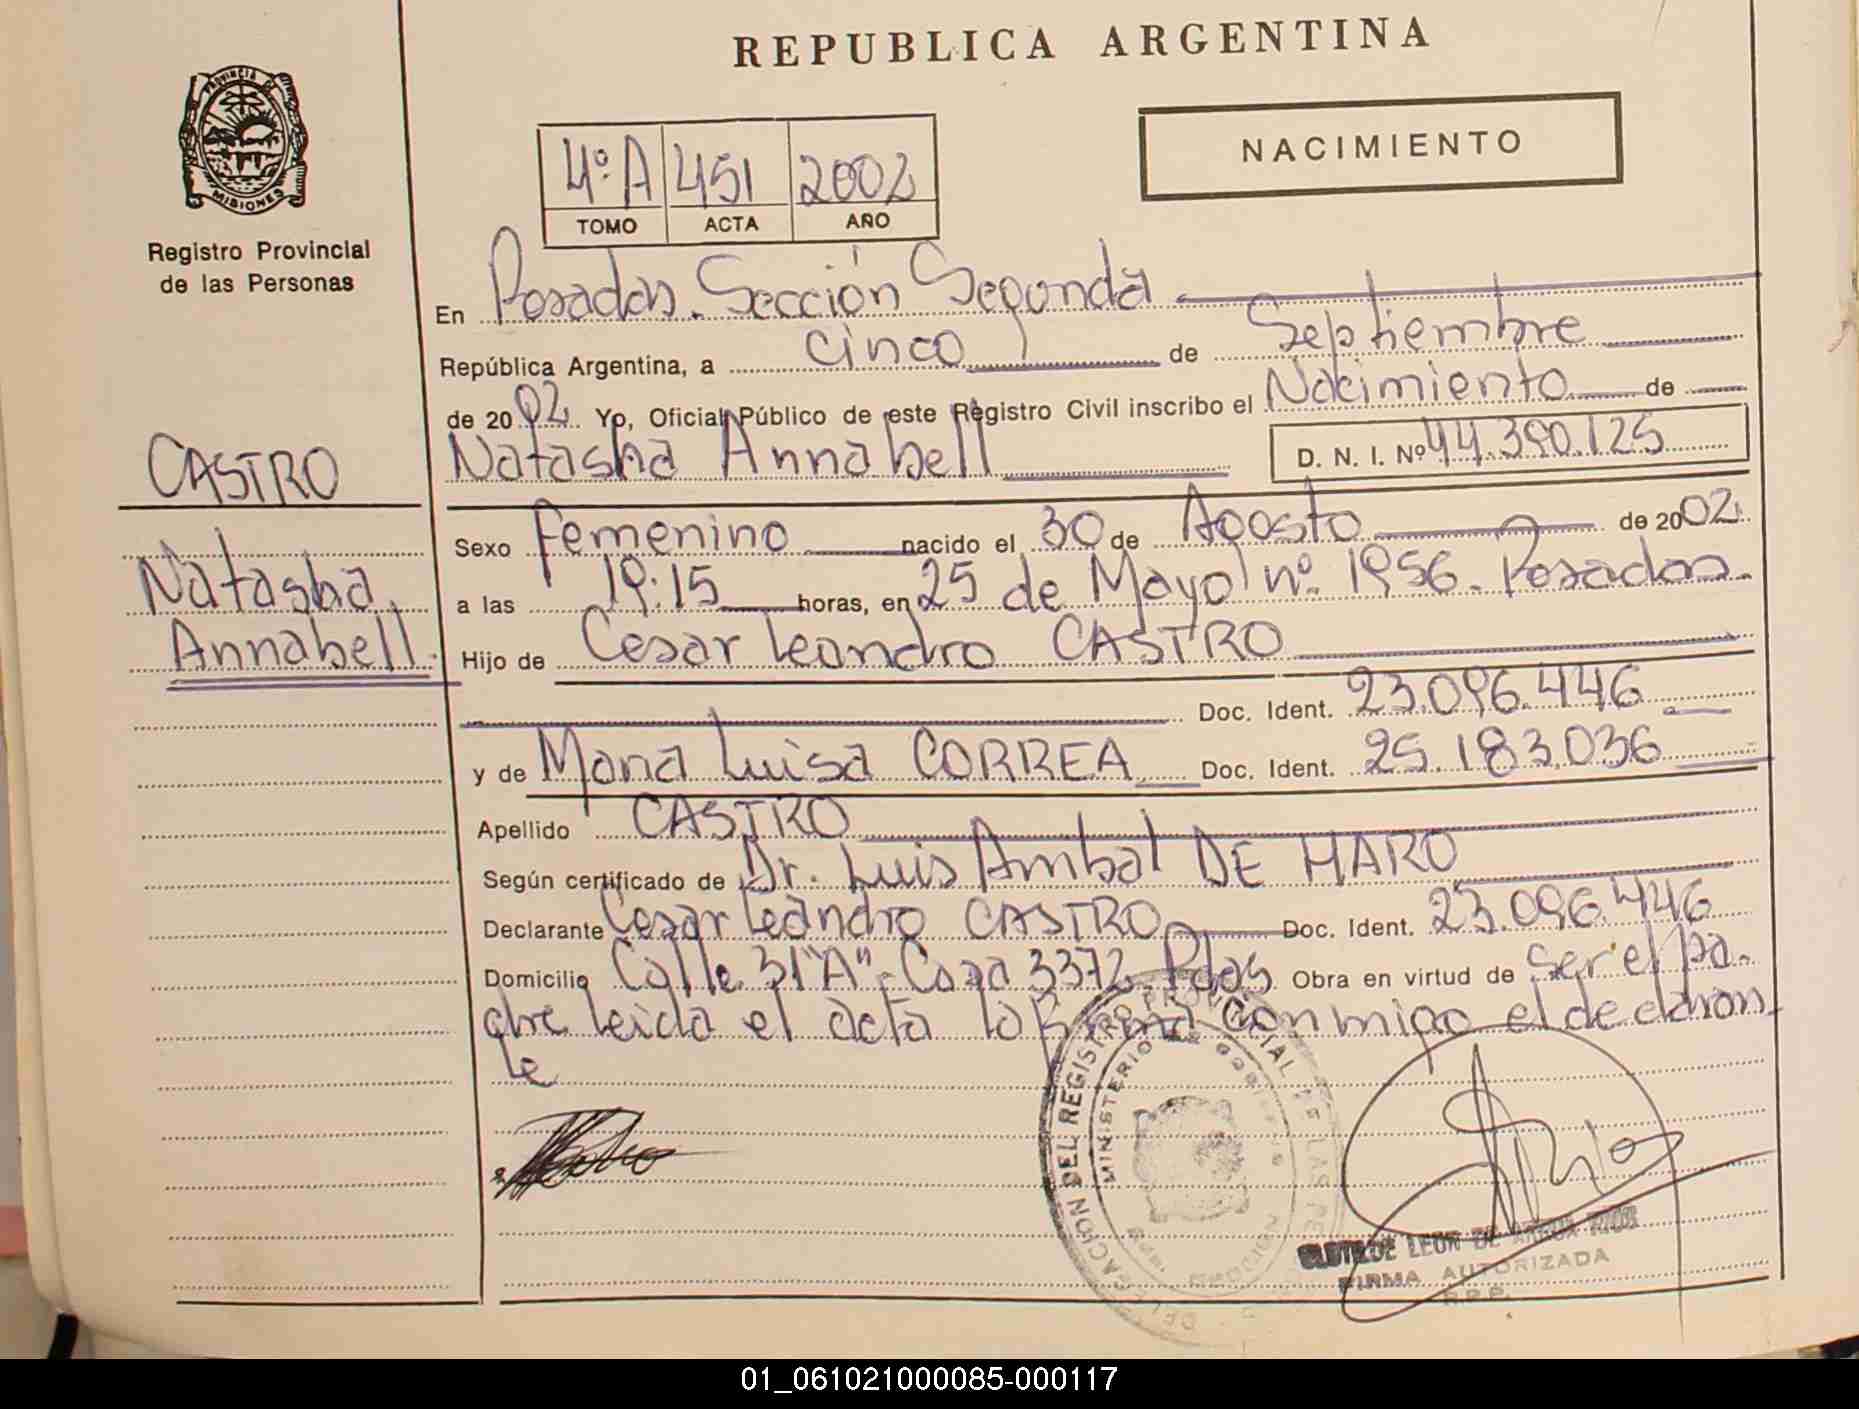 REPUBLICA ARGENTINA
PROVINCIA DE
MISIONES
Registro Provincial
de las Personas
4º A 451 2002
TOMO ACTA AÑO
NACIMIENTO
En Posadas. Sección Segunda
República Argentina, a cinco de Septiembre
de 2002 Yo, Oficial Público de este Registro Civil inscribo el Nacimiento de
Natasha Annabell D. N. I. Nº 44.390.125
CASTRO
Natasha
Annabell
Sexo Femenino nacido el 30 de Agosto de 2002
a las 19:15 horas, en 25 de Mayo nº 1956. Posadas
Hijo de Cesar Leandro CASTRO
Doc. Ident. 23.096.446
y de Maria Luisa CORREA Doc. Ident. 25.183.036
Apellido CASTRO
Según certificado de Dr. Luis Anibal DE HARO
Declarante Cesar Leandro CASTRO Doc. Ident. 23.096.446
Domicilio Calle 31 "A" - Casa 3372 Pdas Obra en virtud de ser el pa-
dre leida el acta la firma conmigo el declaran-
te
DELEGACION DEL REGISTRO PROVINCIAL DE LAS PE
MINISTERIO DE GOBIERNO
CLOTILDE LEON DE RIOS
FIRMA AUTORIZADA
R.P.P.
01_061021000085-000117